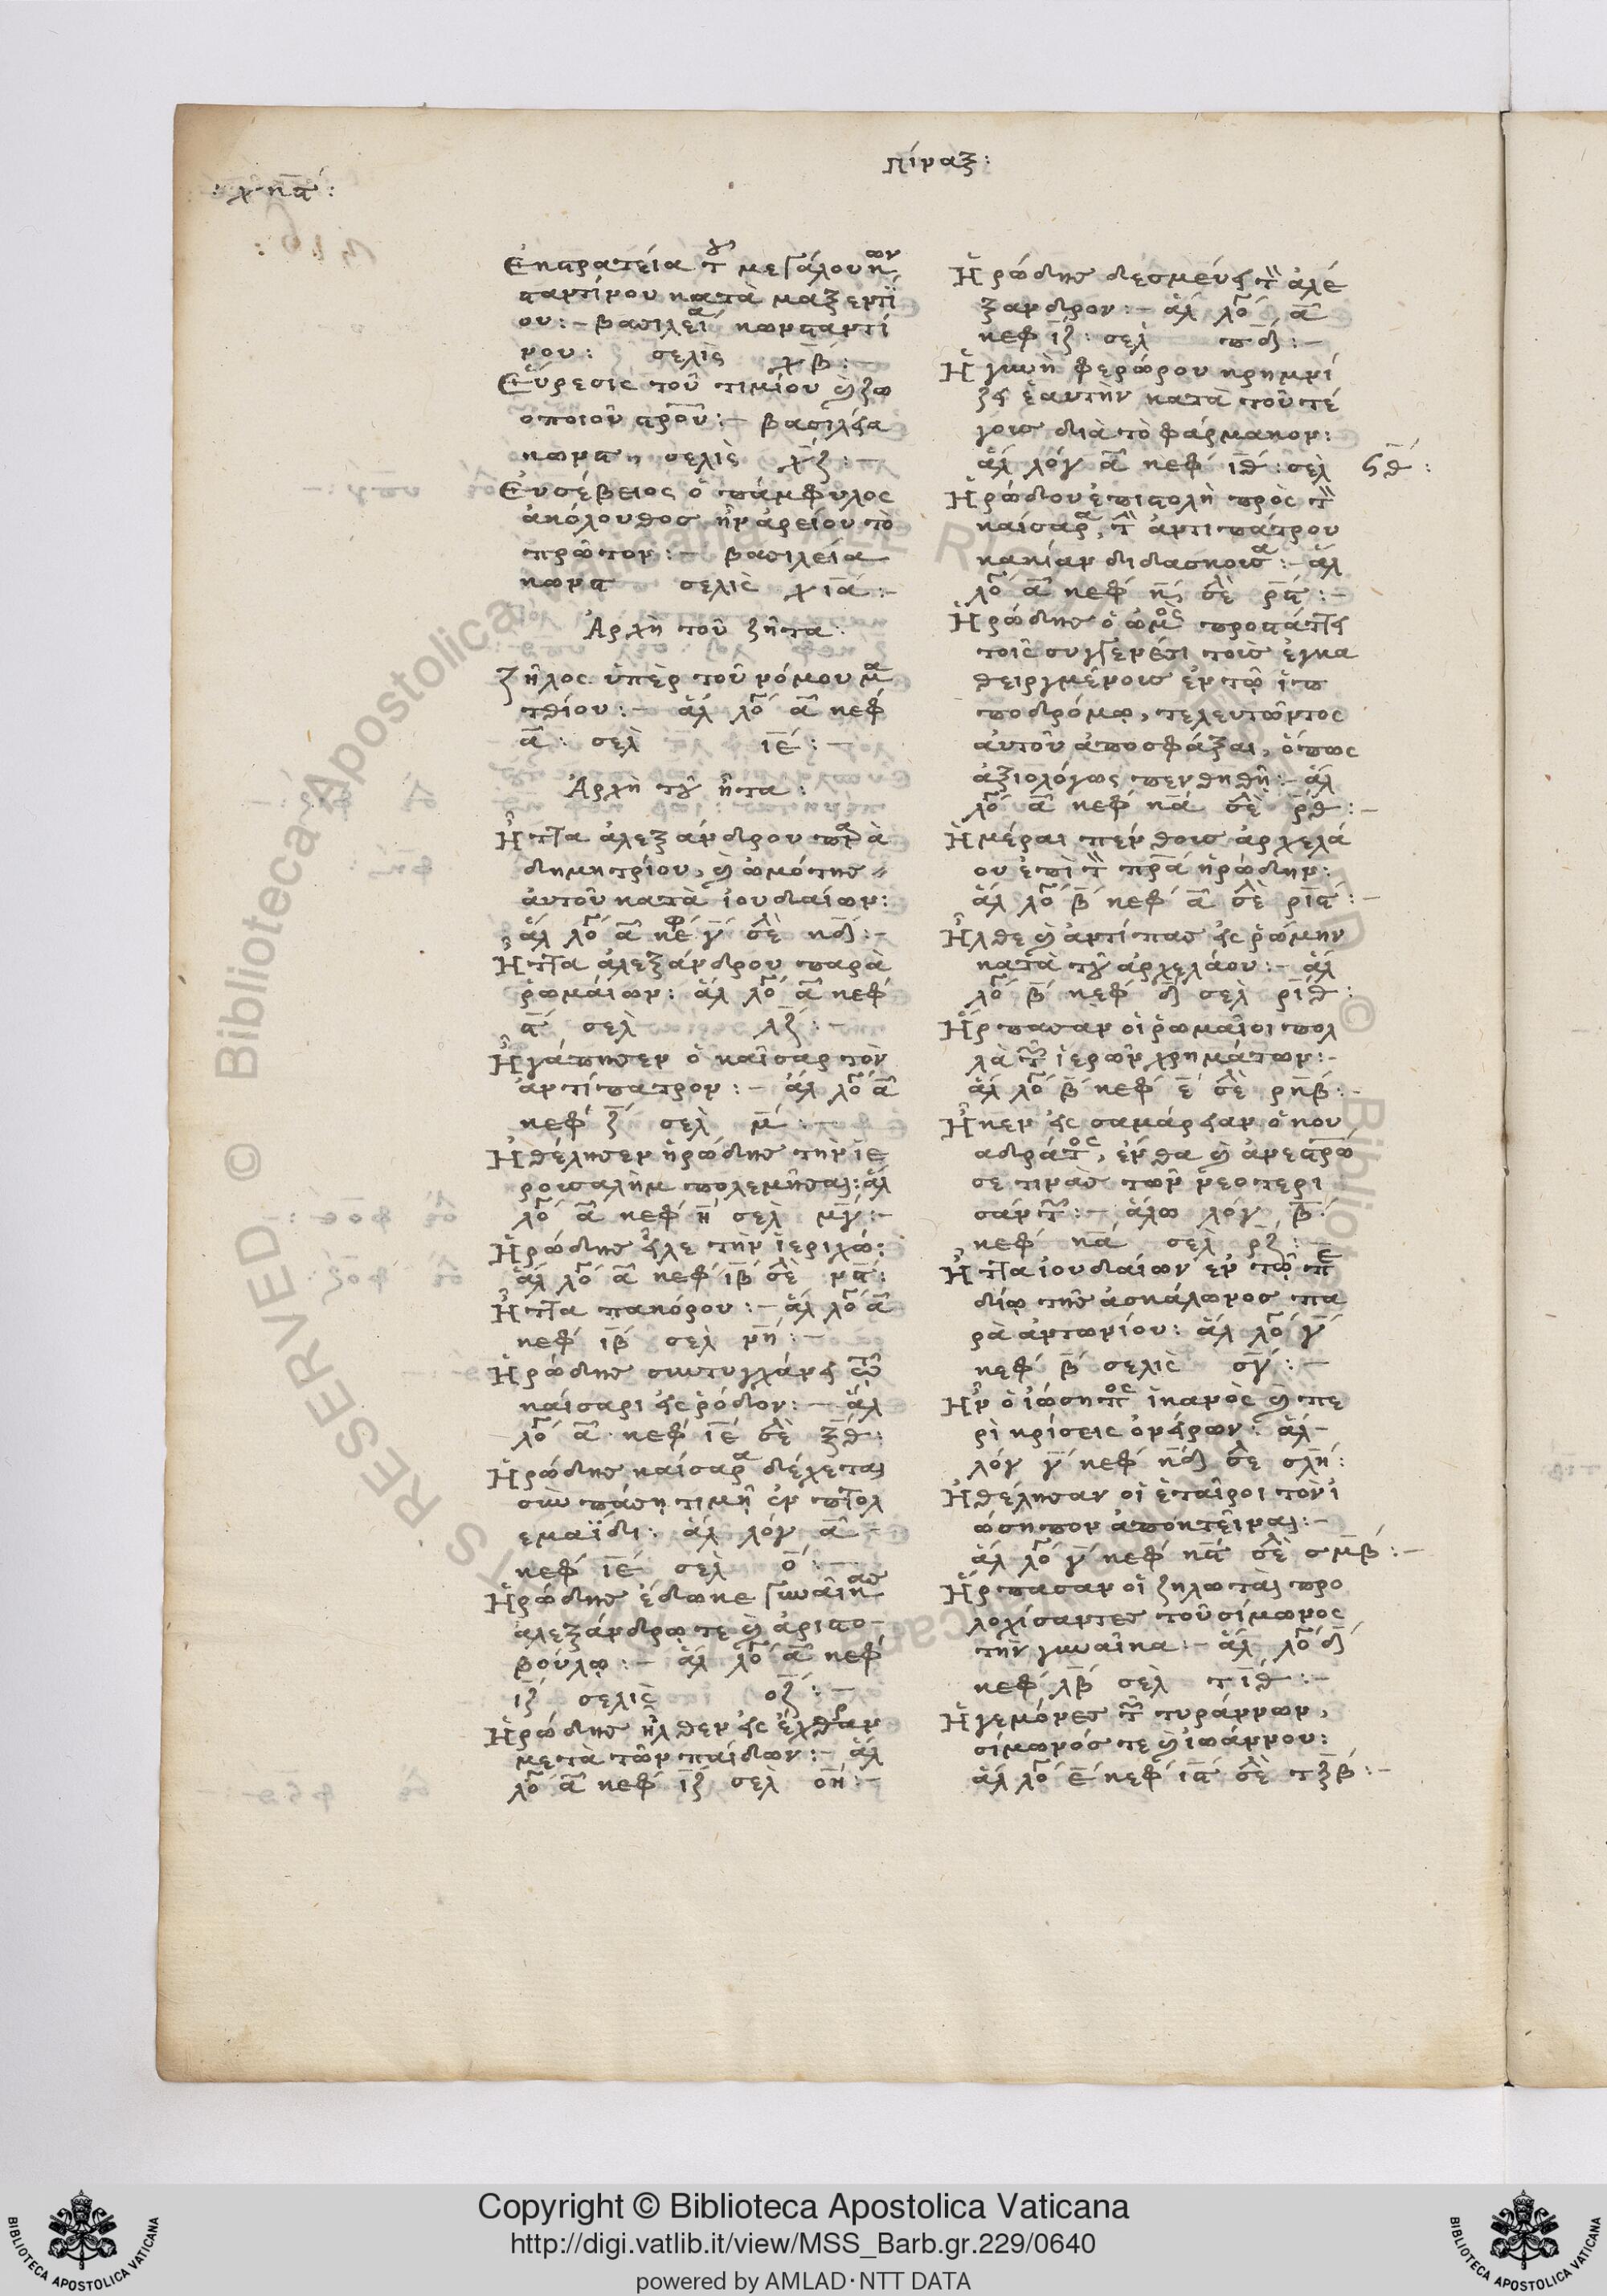 Πίναξ:
χκϛ:
Ἐκστρατεία τοῦ μεγάλου κων
σταντίνου κατὰ μαξεντί
ου:– βασιλεία κωνσταντί
νου: σελὶς χβ:–
Εὕρεσις τοῦ τιμίου καὶ ζω
οποιοῦ στροῦ:– βασιλεία
κωνστ σελὶς χζ:–
Εὐσέβειος ὁ πάμφυλος
ἀκόλουθος ἦν ἀρείου τὸ
πρῶτον:– βασιλεία
κωνστ σελὶς χιᾱ:–
Ἀρχὴ τοῦ ζῆτα:
Ζῆλος ὑπὲρ τοῦ νόμου μα
τθίου:– ἁλ λο ᾱ κεφ
ᾱ: σελ ιε:–
Ἀρχὴ τοῦ ἦτα:
Ἧττα ἀλεξάνδρου παρὰ
δημητρίου, καὶ ὠμότης
αὐτοῦ κατὰ ἰουδαίων:
ἁλ λο ᾱ κεφ γ σελ κδ:–
Ἧττα ἀλεξάνδρου παρὰ
ῥωμαίων: ἁλ λο ᾱ κεφ
ϛ σελ λζ:–
Ἠγάπησεν ὁ καῖσαρ τὸν
ἀντίπατρον:– ἁλ λο ᾱ
κεφ ζ σελ μ:–
Ἠθέλησεν ἡρώδης τὴν ἱε
ρουσαλὴμ πολεμῆσαι: ἁλ
λο ᾱ κεφ η σελ μγ:–
Ἡρώδης εἷλε τὴν ἱεριχώ:
ἁλ λο ᾱ κεφ ιβ σελ νϛ:
Ἧττα πακόρου:– ἁλ λο ᾱ
κεφ ιβ σελ νη:–
Ἡρώδης συντυγχάνει τῷ
καίσαρι εἰς ῥόδον:– ἁλ
λο ᾱ κεφ ιε σελ ξθ:
Ἡρώδης καίσαρα δέχεται
σὺν πάσῃ τιμῇ ἐν πτολ
εμαΐδι: ἁλ λόγ ᾱ –
κεφ ιε σελ ο:–
Ἡρώδης ἔδωκε γυναῖκας
ἀλεξάνδρῳ τε καὶ ἀριστο
βούλῳ:– ἁλ λο ᾱ κεφ
ιζ σελὶς οζ:–
μετὰ τῶν παίδων:– ἁλ
λο ᾱ κεφ ιζ σελ οη:–
Ἡρώδης δεσμεύει τὸν ἀλέ
ξανδρον:– ἁλ λο ᾱ
κεφ ιζ: σελ πδ:–
Ἡ γυνὴ φερώρου κρημνί
ζει ἑαυτὴν κατὰ τοῦ τέ
γους διὰ τὸ φάρμακον:
ἁλ λόγ ᾱ κεφ ιθ: σελ ϟθ:
Ἡρώδου ἐπιστολὴ πρὸς τὸν
καίσαρα, τὴν ἀντιπάτρου
κακίαν διδάσκουσα:– ἁλ
λο ᾱ κεφ κ σελ ρϛ:–
Ἡρώδης ὁ ὠμὸς προστάττει
τοῖς συγγενέσι τοὺς ἐγκα
θειργμένους ἐν τῷ ἱπ
ποδρόμῳ, τελευτῶντος
αὐτοῦ ἀποσφάξαι, ὅπως
ἀξιολόγως πενθηθῇ:– ἁλ
λο ᾱ κεφ κᾱ σελ ρθ:–
Ἡμέραι πένθους ἀρχελά
ου ἐπὶ τὸν πρᾱ ἡρώδην:
ἁλ λο β κεφ ᾱ σελ ριϛ:–
Ἦλθε καὶ ἀντίπας εἰς ῥώμην
κατὰ τοῦ ἀρχελάου:– ἁλ
λο β κεφ δ σελ ριθ:
Ἥρπασαν οἱ ῥωμαῖοι πολ
λὰ τῶν ἱερῶν χρημάτων:–
ἁλ λο β κεφ ε σελ ρκβ:–
Ἧκεν εἰς σαμάρειαν ὁ κου
αδράτος, ἔνθα καὶ ἀνεσταύρω
σε τινὰς τῶν νεοτερι
σάντων:– ἁλω λόγ β
κεφ κᾱ σελ ρζ:–
Ἧττα ἰουδαίων ἐν τῷ πε
δίῳ τῆς ἀσκάλωνος πα
ρὰ ἀντωνίου: ἁλ λο γ
κεφ β σελὶς σγ:–
Ἦν ὁ ἰώσηπος ἱκανὸς καὶ πε
ρὶ κρίσεις ὀνείρων: ἁλ–
λόγ γ κεφ κδ σελ σλη:
Ἠθέλησαν οἱ ἑταῖροι τὸν ἰ
ώσηπον ἀποκτεῖναι:–
ἁλ λο γ κεφ κϛ σελ σμβ:–
Ἥρπασαν οἱ ζηλωταὶ προ
λοχίσαντες τοῦ σίμωνος
τὴν γυναῖκα:– ἁλ λο δ
κεφ λβ σελ τιθ:–
Ἡγεμόνες τῶν τυράννων,
σίμωνός τε καὶ ἰωάννου:
ἁλ λο ε κεφ ιϛ σελ τξβ:–
Copyright © Biblioteca Apostolica Vaticana
http://digi.vatlib.it/view/MSS_Barb.gr.229/0640
powered by AMLAD·NTT DATA
BIBLIOTECA APOSTOLICA VATICANA
BIBLIOTECA APOSTOLICA VATICANA